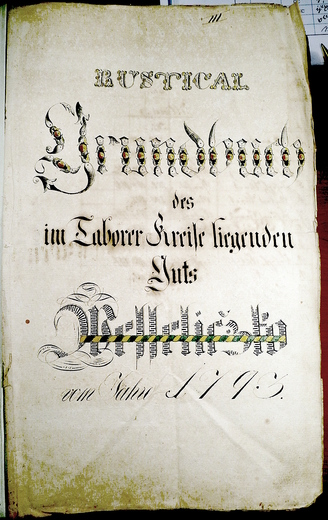 m
RUSTICAL
Grundbuch
des
im Taborer Kreise liegenden
Guts
vom Jahre 1793.